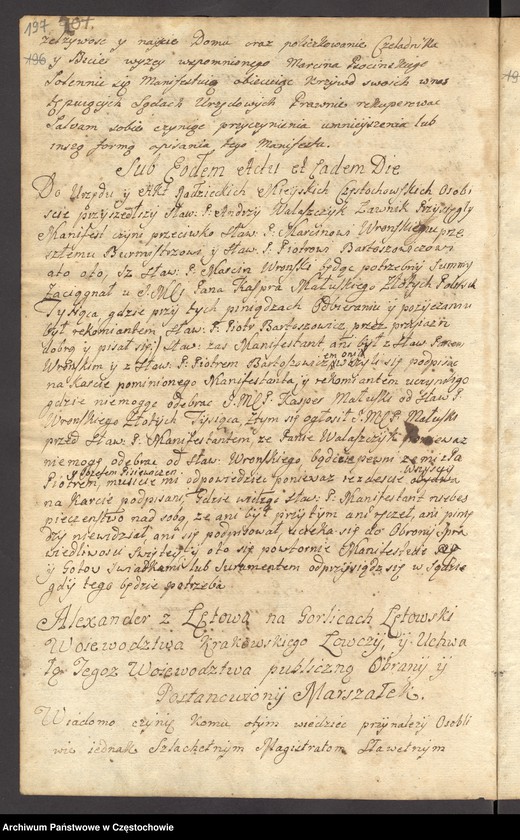 197.
196
zelzywość y najście Domu oraz policzkowanie Czeladnika
y Bicie wyżey wspomnionego Marcina
Solennie się Manifestuią obiecuiąc krzywd swoich wnas
tępuiących Sądach Urzędowych Prawnie rekuperować
Salvam sobie czyniąc przyczynienia umnieyszenia lub
inszą formą opisania tego Manifestu.
Sub Eodem Actu et Eadem Die
Do Urzędu y Akt Radzieckich Mieyskich Częstochowskich Osobi
ście przyszedszy Sław: P: Andrzy Walaszczyk Ławnik Przysięgły
Manifest czyni przeciwko Sław: P: Marcinowi Wronskiemu prze
szłemu Burmistrzowi y Sław: P. Piotrowi Bartoszowiczowi
ato oto, Iż Sław: P: Marcin Wronski będąc potrzebny Summy
Zaciągnął u J:MCi Pana Kaspra Małuskiego Złotych Polskich
Tysiąca, gdzie przy tych piniądzach Odbieraniu y pożyczaniu
był rekomiantem Sław: P: Piotr Bartoszowicz przez przyiaźń
dobrą y pisał się;) Sław: zas Manifestant ani był z Sław Panem
Wronskim y z Sław: P: Piotrem Bartoszowiczem się podpisać
na Karcie pominionego Manifestanta, y rekomiantem uczynionego
gdzie niemogąc odebrać J:MCP. Kasper Małuski od Sław P:
Wronskiego Złotych Tysiąca, z tym się ogłosił J:MCP. Małuski
przed Sław: P. Manifestantem, ze Panie Walaszczyk ponieważ
niemogę odebrać od Sław: Wronskiego będziecie wy mi zza
y Józefem
Piotrem, musicie mi odpowiedzieć ponieważ
wszyscy
na Karcie podpisani, gdzie widząc Sław: P: Manifestant niebes
pieczenstwo nad sobą, ze ani był przytym ani słyszał, ani pinię
dzy niewidział, ani się podpisował, ucieka się do Obrony Spra
wiedliwości Swiętey y oto się powtornie Manifestuie
y Gotow Swiadkami lub Juramentem odprzysiądz się w Sądzie
gdy tego będzie potrzeba
Alexander z Łętowa na Gorlicach Łętowski
Woiewodztwa Krakowskiego Łowczy, y Uchwa
łą Tegoz Woiewodztwa publiczną Obrany y
Postanowiony Marszałek.
Wiadomo czynię Komu otym wiedzieć przynależy Osobli
wie iednak Szlachetnym Magistratom Sławetnym
Archiwum Państwowe w Częstochowie